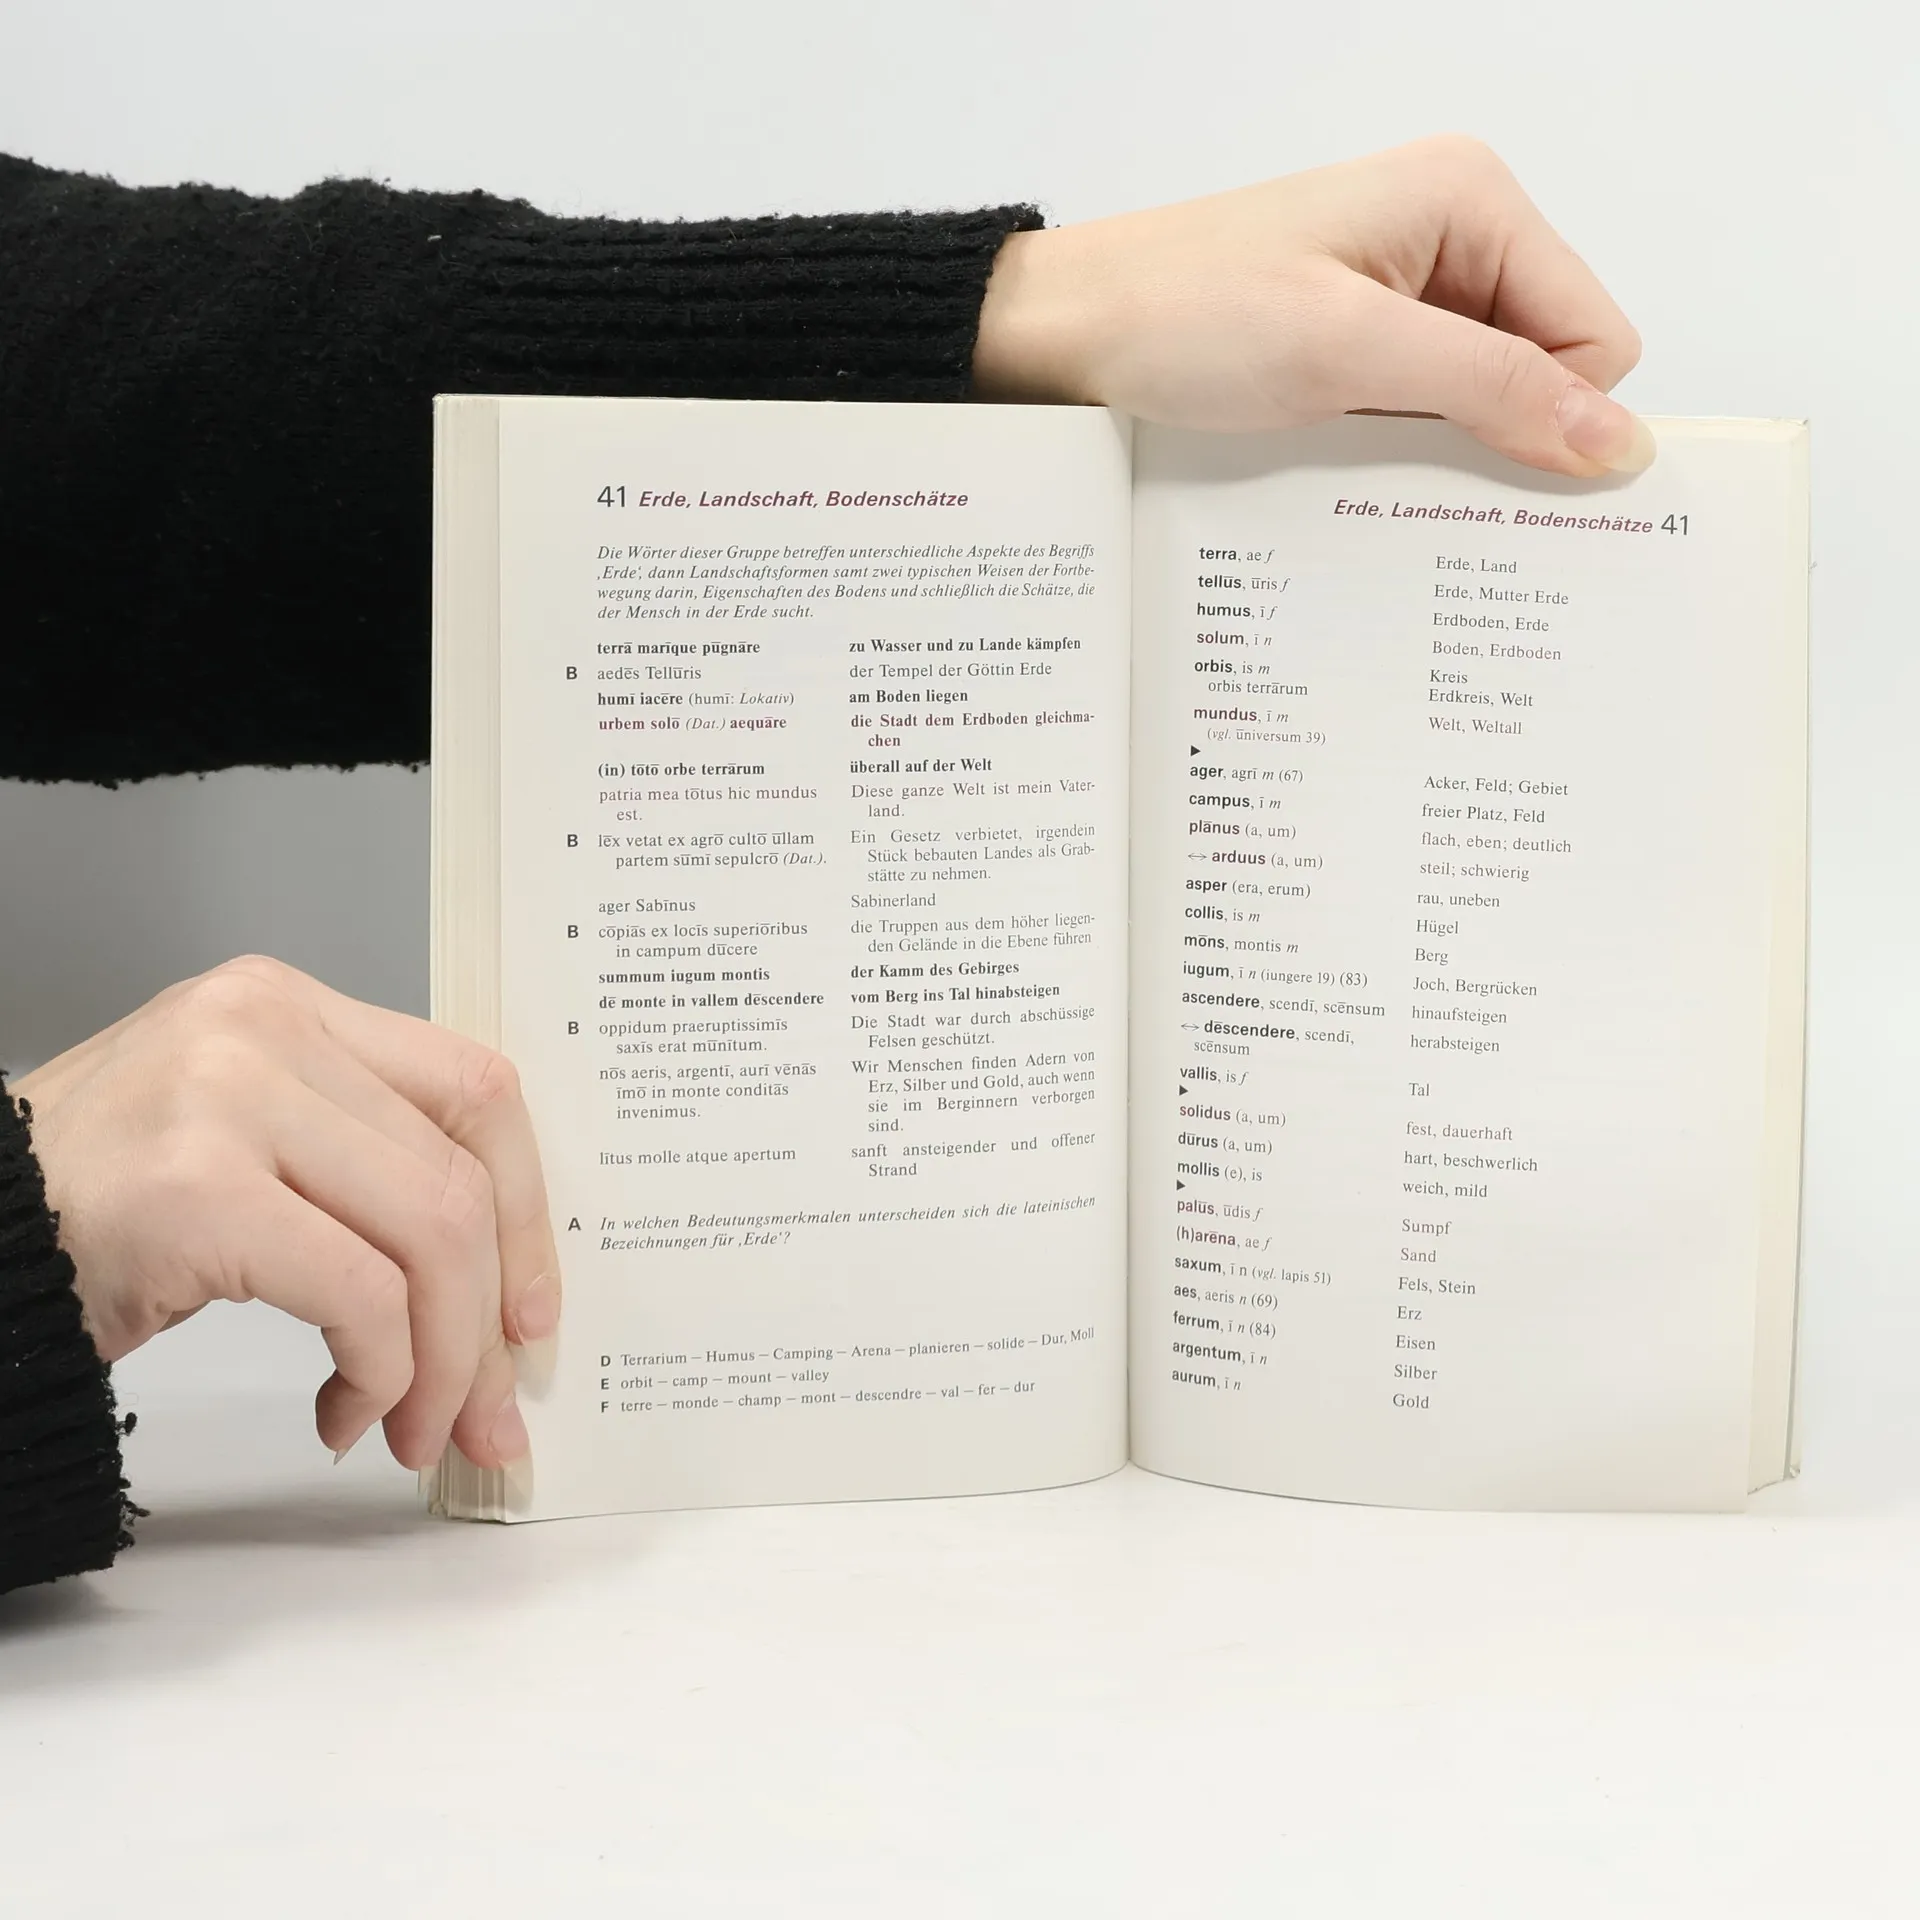 41 Erde, Landschaft, Bodenschätze
Die Wörter dieser Gruppe betreffen unterschiedliche Aspekte des Begriffs
‚Erde‘, dann Landschaftsformen samt zwei typischen Weisen der Fortbe-
wegung darin, Eigenschaften des Bodens und schließlich die Schätze, die
der Mensch in der Erde sucht.
terrā marīque pūgnāre zu Wasser und zu Lande kämpfen
B aedēs Tellūris der Tempel der Göttin Erde
humī iacēre (humī: Lokativ) am Boden liegen
urbem solō (Dat.) aequāre die Stadt dem Erdboden gleichma-
chen
(in) tōtō orbe terrārum überall auf der Welt
patria mea tōtus hic mundus Diese ganze Welt ist mein Vater-
est. land.
B lēx vetat ex agrō cultō ūllam Ein Gesetz verbietet, irgendein
partem sūmī sepulcrō (Dat.). Stück bebauten Landes als Grab-
stätte zu nehmen.
ager Sabīnus Sabinerland
B cōpiās ex locīs superiōribus die Truppen aus dem höher liegen-
in campum dūcere den Gelände in die Ebene führen
summum iugum montis der Kamm des Gebirges
dē monte in vallem dēscendere vom Berg ins Tal hinabsteigen
B oppidum praeruptissimīs Die Stadt war durch abschüssige
saxīs erat mūnītum. Felsen geschützt.
nōs aeris, argentī, aurī vēnās Wir Menschen finden Adern von
īmō in monte conditās Erz, Silber und Gold, auch wenn
invenimus. sie im Berginnern verborgen
sind.
lītus molle atque apertum sanft ansteigender und offener
Strand
A In welchen Bedeutungsmerkmalen unterscheiden sich die lateinischen
Bezeichnungen für ‚Erde‘?
D Terrarium – Humus – Camping – Arena – planieren – solide – Dur, Moll
E orbit – camp – mount – valley
F terre – monde – champ – mont – descendre – val – fer – dur
Erde, Landschaft, Bodenschätze 41
terra, ae f Erde, Land
tellūs, ūris f Erde, Mutter Erde
humus, ī f Erdboden, Erde
solum, ī n Boden, Erdboden
orbis, is m Kreis
orbis terrārum Erdkreis, Welt
mundus, ī m Welt, Weltall
(vgl. ūniversum 39)
▶
ager, agrī m (67) Acker, Feld; Gebiet
campus, ī m freier Platz, Feld
plānus (a, um) flach, eben; deutlich
↔ arduus (a, um) steil; schwierig
asper (era, erum) rau, uneben
collis, is m Hügel
mōns, montis m Berg
iugum, ī n (iungere 19) (83) Joch, Bergrücken
ascendere, scendī, scēnsum hinaufsteigen
↔ dēscendere, scendī, herabsteigen
scēnsum
vallis, is f Tal
▶
solidus (a, um) fest, dauerhaft
dūrus (a, um) hart, beschwerlich
mollis (e), is weich, mild
▶
palūs, ūdis f Sumpf
(h)arēna, ae f Sand
saxum, ī n (vgl. lapis 51) Fels, Stein
aes, aeris n (69) Erz
ferrum, ī n (84) Eisen
argentum, ī n Silber
aurum, ī n Gold